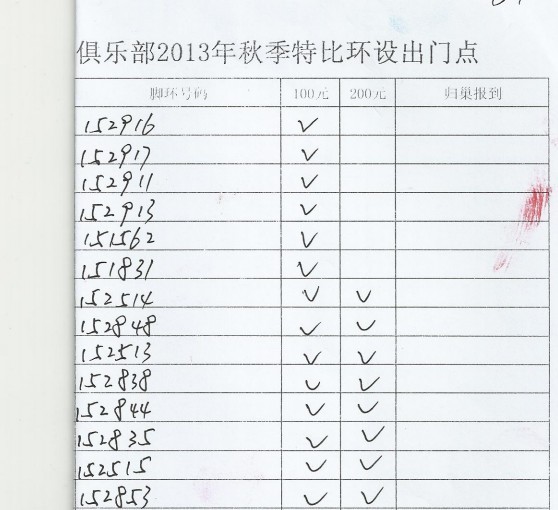 俱乐部2013年秋季特比环设出门点
脚环号码 100元 200元 归巢报到
152916 ✓
152917 ✓
152911 ✓
152913 ✓
151562 ✓
151831 ✓
152514 ✓ ✓
152848 ✓ ✓
152513 ✓ ✓
152838 ✓ ✓
152844 ✓ ✓
152835 ✓ ✓
152515 ✓ ✓
152853 ✓ ✓